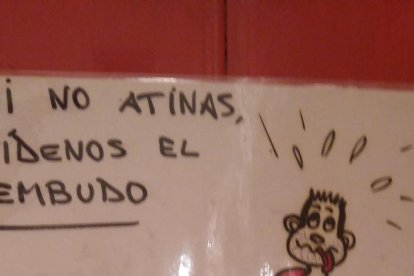 i NO ATINAS,
ÍDENOS EL
EMBUDO